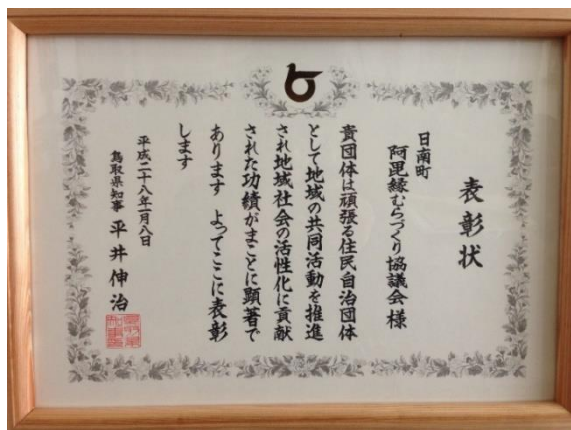 表彰状
日南町
阿毘縁むらづくり協議会 様
貴団体は頑張る住民自治団体
として地域の共同活動を推進
され地域社会の活性化に貢献
された功績がまことに顕著で
あります よってここに表彰
します
平成二十八年一月八日
鳥取県知事 平井伸治